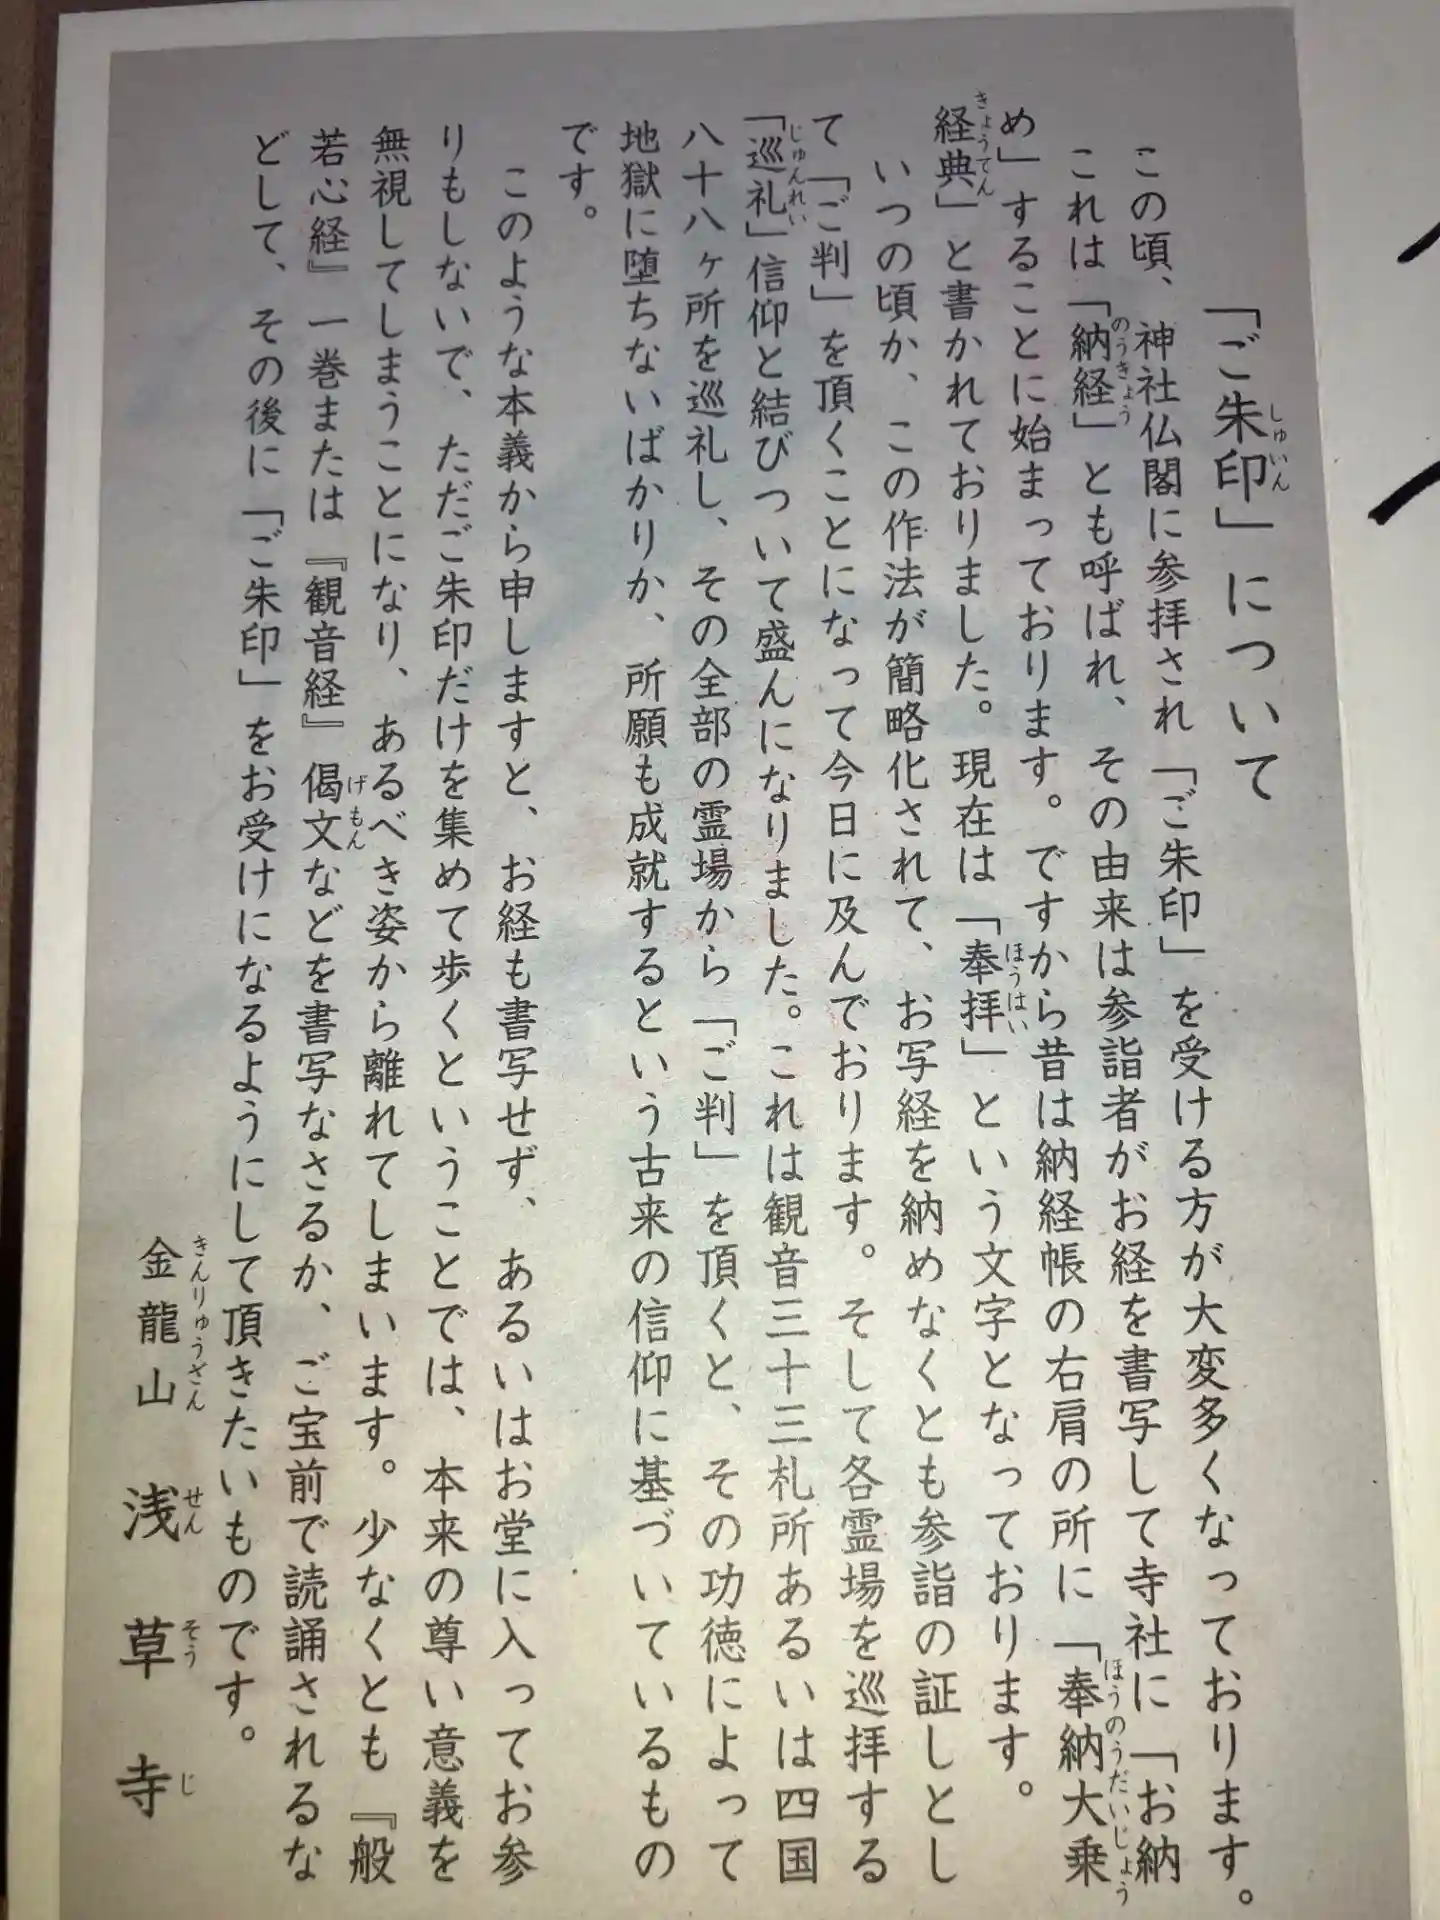 「ご朱印」について
この頃、神社仏閣に参拝され「ご朱印」を受ける方が大変多くなっております。
これは「納経」とも呼ばれ、その由来は参詣者がお経を書写して寺社に「お納
め」することに始まっております。ですから昔は納経帳の右肩の所に「奉納大乗
経典」と書かれておりました。現在は「奉拝」という文字となっております。
いつの頃か、この作法が簡略化されて、お写経を納めなくとも参詣の証しとし
て「ご判」を頂くことになって今日に及んでおります。そして各霊場を巡拝する
「巡礼」信仰と結びついて盛んになりました。これは観音三十三札所あるいは四国
八十八ヶ所を巡礼し、その全部の霊場から「ご判」を頂くと、その功徳によって
地獄に堕ちないばかりか、所願も成就するという古来の信仰に基づいているもの
です。
このような本義から申しますと、お経も書写せず、あるいはお堂に入ってお参
りもしないで、ただご朱印だけを集めて歩くということでは、本来の尊い意義を
無視してしまうことになり、あるべき姿から離れてしまいます。少なくとも『般
若心経』一巻または『観音経』偈文などを書写なさるか、ご宝前で読誦されるな
どして、その後に「ご朱印」をお受けになるようにして頂きたいものです。
金龍山 浅草寺
しゅいん
のうきょう
ほうのうだいじょう
きょうてん
ほうはい
じゅんれい
げもん
きんりゅうざん
せん そう じ